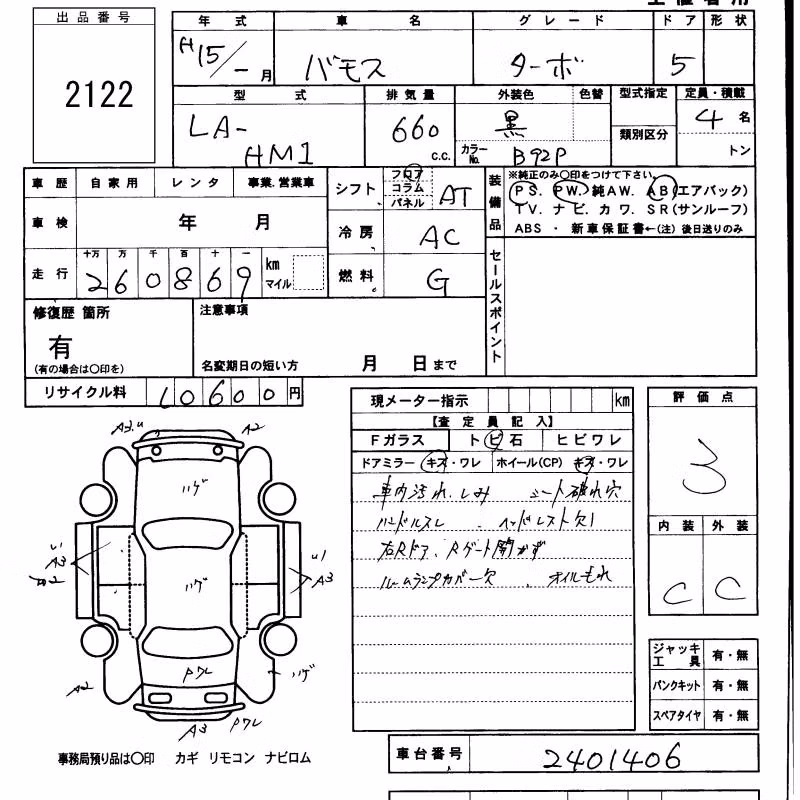 出品番号
2122
年式 車名 グレード ドア 形状
H15/-月 バモス ターボ 5
型式 排気量 外装色 色替 型式指定 定員・積載
LA-HM1 660 c.c. 黒 カラーNo. B92P 類別区分 4名 トン
車歴 自家用 レンタ 事業.営業車
車検 年 月
走行 十万 万 千 百 十 一
260869 km マイル
シフト フロア コラム パネル AT
冷房 AC
燃料 G
装備品
※純正のみ○印をつけて下さい。
PS. PW. 純AW. AB(エアバック)
TV. ナビ. カワ. SR(サンルーフ)
ABS ・ 新車保証書←(注) 後日送りのみ
セールスポイント
修復歴 箇所
有
(有の場合は○印を)
注意事項
名変期日の短い方 月 日まで
リサイクル料 10600円
現メーター指示 km
【査定員記入】
Fガラス トビ石 ヒビワレ
ドアミラー キズ・ワレ ホイール(CP) キズ・ワレ
車内汚れ.しみ シート破れ穴
ハンドルスレ 、ヘッドレスト欠1
右Rドア、Rゲート開かず
ルームランプカバー欠 、オイルもれ
評価点
3
内装 外装
C C
ジャッキ工具 有・無
パンクキット 有・無
スペアタイヤ 有・無
A2
ハゲ
A3
A3
ハゲ
Pワレ
ハゲ
A2
A3
Pワレ
事務局預り品は○印 カギ リモコン ナビロム
車台番号 2401406